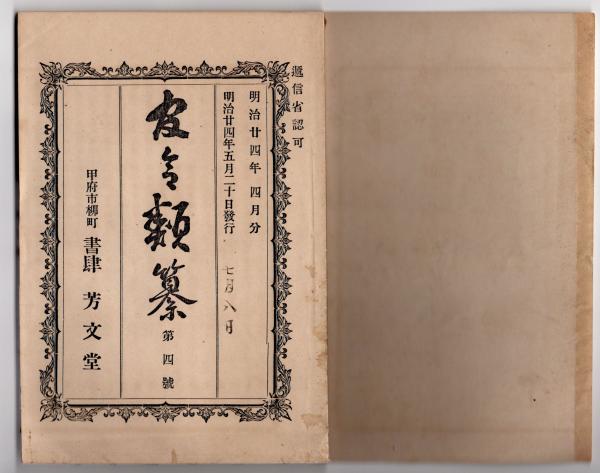 遞信省認可
明治廿四年四月分
明治廿四年五月二十日發行
七月八日
官令類纂 第四號
甲府市柳町 書肆 芳文堂